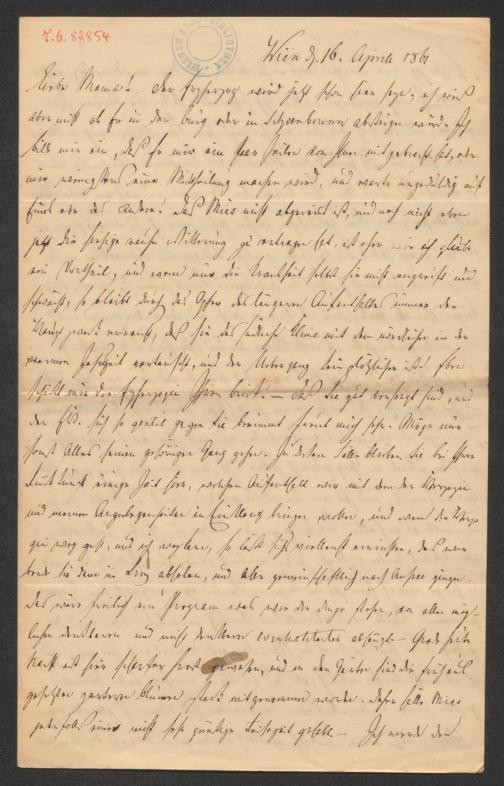 J.N. 83854
WIENER STADTBIBLIOTHEK
Wien d. 16. April 1861
Liebe Mama! Der Erzherzog wird jetzt schon hier sein, ich weiß
aber nicht ob er in der Burg oder in Schoenbrunn absteigen würde. Ich
bilde mir ein, daß er mir ein paar Zeilen von Ihnen mitgebracht hat, oder
mir wenigstens eine Mittheilung machen wird, und warte ungeduldig auf
Eines oder das Andere! Daß Mies nicht abgereist ist, und noch nicht eben
jetzt die hiesige rauhe Witterung zu ertragen hat, ist eher wie ich glaube
ein Vortheil, und wenn nur die Krankheit selbst sie nicht angreift und
schwächt, so bleibt durch das Opfer des längeren Aufenthaltes immer der
Zweck erreicht, daß sie das südliche Clima mit dem nördlichen in der
warmen Jahrszeit vertauscht, und der Uebergang kein plötzlicher ist! Eben
schickt mir die Erzherzogin Ihren Brief! — Daß Sie gut versorgt sind, und
der Eh. sich so gentil gegen Sie benimmt freut mich sehr. Möge nur
sonst Alles seinen gehörigen Gang gehen. In diesem Falle bleiben Sie bei Ihrer
einige Zeit hier, welchen Aufenthalt wir mit dem der Herzogin
und meinen Angelegenheiten in Einklang bringen werden, und wenn die Herzo-
gin weg geht, und ich , so läßt sich vielleicht erreichen, daß wir
beide Sie dann in Linz abholen, und Alle gemeinschaftlich nach Aussee gingen.
Das wäre freilich ein Program was wie die Dinge stehen, von allen mög-
lichen denkbaren und nicht denkbaren Eventualitäten abhängt — Grade heute
Nacht ist hier scharfer Frost gewesen, und in den Gärten sind die früh aus
gesetzten zarteren Blumen stark mitgenommen worden. Daher hätte Mies
jedenfalls eine nicht sehr günstige Reisezeit gehabt — Ich werde den